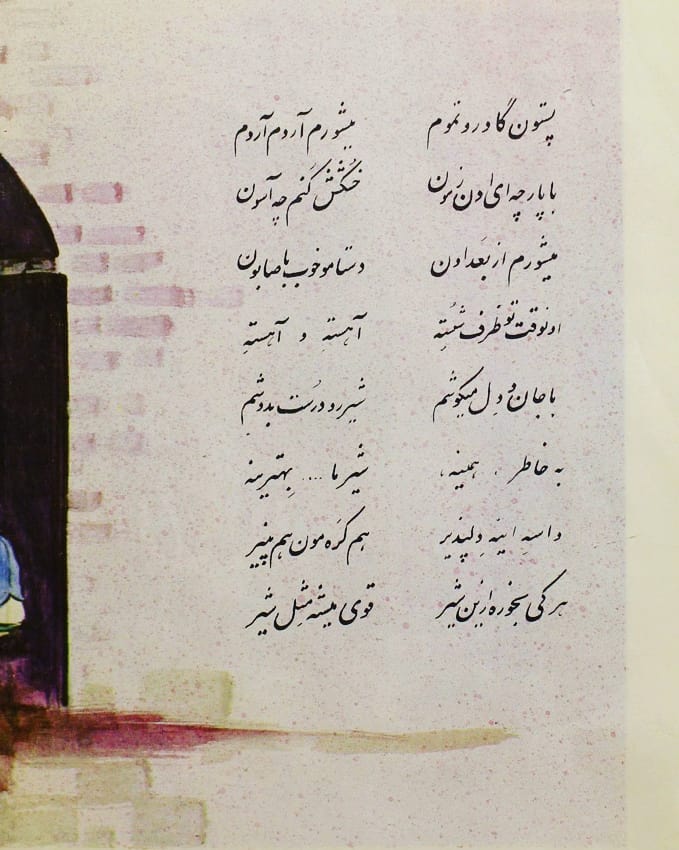 پستون گاو رو تموم میشورم آروم آروم
با پارچه‌ای اون زمون خشکش کنم چه آسون
میشورم از بعد اون دستامو خوب با صابون
اونوقت تو ظرف شسته آهسته و آهسته
با جان و دل میکوشم شیر رو درست بدوشم
به خاطر ، همینه ، شیر ما .... بهترینه
واسه اینه دلپذیر هم کره مون هم پنیر
هر کی بخوره ازین شیر قوی میشه مثل شیر